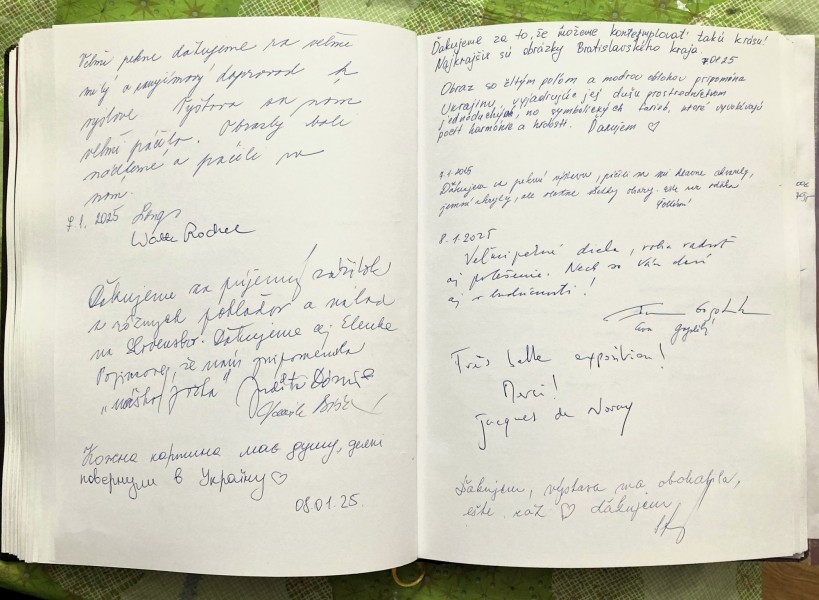 Veľmi pekne ďakujeme za veľmi
milý a zaujímavý doprovod k
výstave. Výstava sa nám
veľmi páčila. Obrazky boli
nádherné a páčili sa
nám.
7.1.2025
Ďakujeme za príjemný zážitok
z rôznych pohľadov a nálad
na Slovensko. Ďakujeme aj Elenke
že nám pripomenula
„nášho Joža" Judita
Кожна картина має душу, деякі
повернули в Україну♡
08.01.25.
Ďakujeme za to, že môžeme kontemplovať takú krásu!
Najkrajšie sú obrázky Bratislavského kraja.
7.01.25
Obraz so žltým poľom a modrou oblohou pripomína
Ukrajinu, vyjadrujúc jej dušu prostredníctvom
jednoduchých, no symbolických farieb, ktoré vyvolávajú
pocit harmónie a hrdosti. Ďakujem ♡
7.1.2025
Ďakujem za peknú výstavu, páčili sa mi hlavne akvarely,
jemné akryly, ale vlastne všetky obrazy.
8.1.2025
Veľmi pekné diela, robia radosť
aj potešenie. Nech sa Vám darí
aj v budúcnosti!
Eva
Très belle exposition!
Merci!
Jacques de Noray
Ďakujem, výstava ma obohatila,
ešte raz ♡ ďakujem